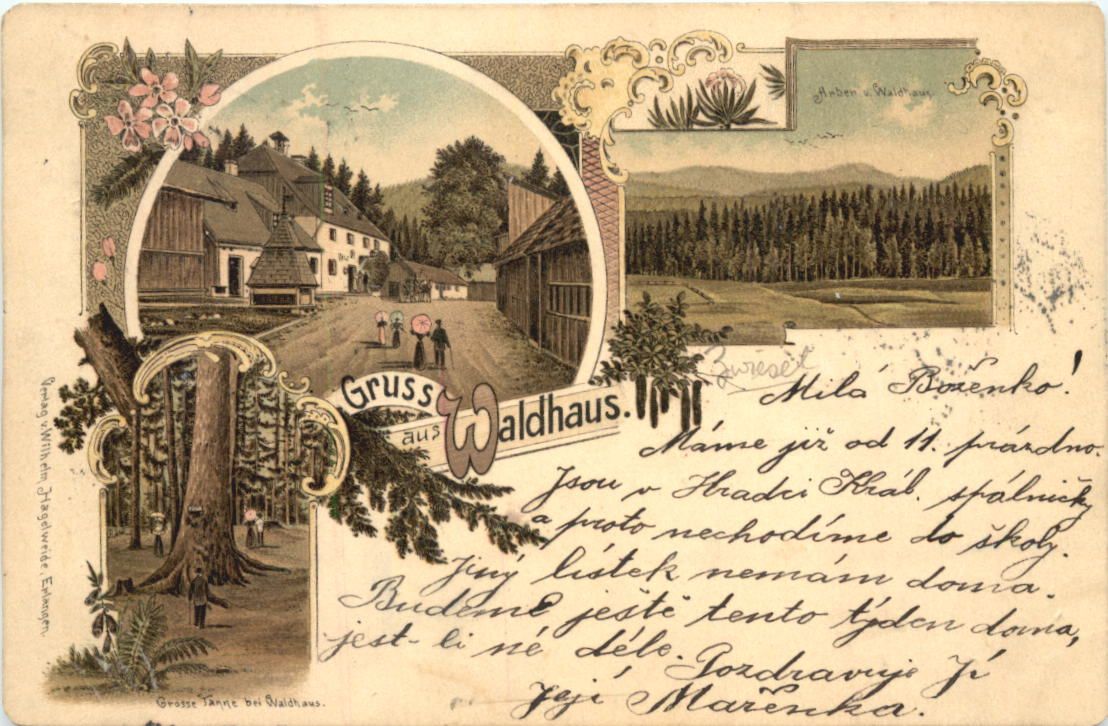 Arben v. Waldhaus
Gruss
aus Waldhaus.
Zwiesel
Milá Boženko!
Máme již od 11. prázdno.
Jsou v Hradci Král. spálničky
a proto nechodíme do školy.
Jiný lístek nemám doma.
Budeme ještě tento týden doma,
jest-li né déle.
Pozdravuje Jí
Její Mařenka.
Grosse Tanne bei Waldhaus.
Verlag v. Wilhelm Hagelweide, Erlangen